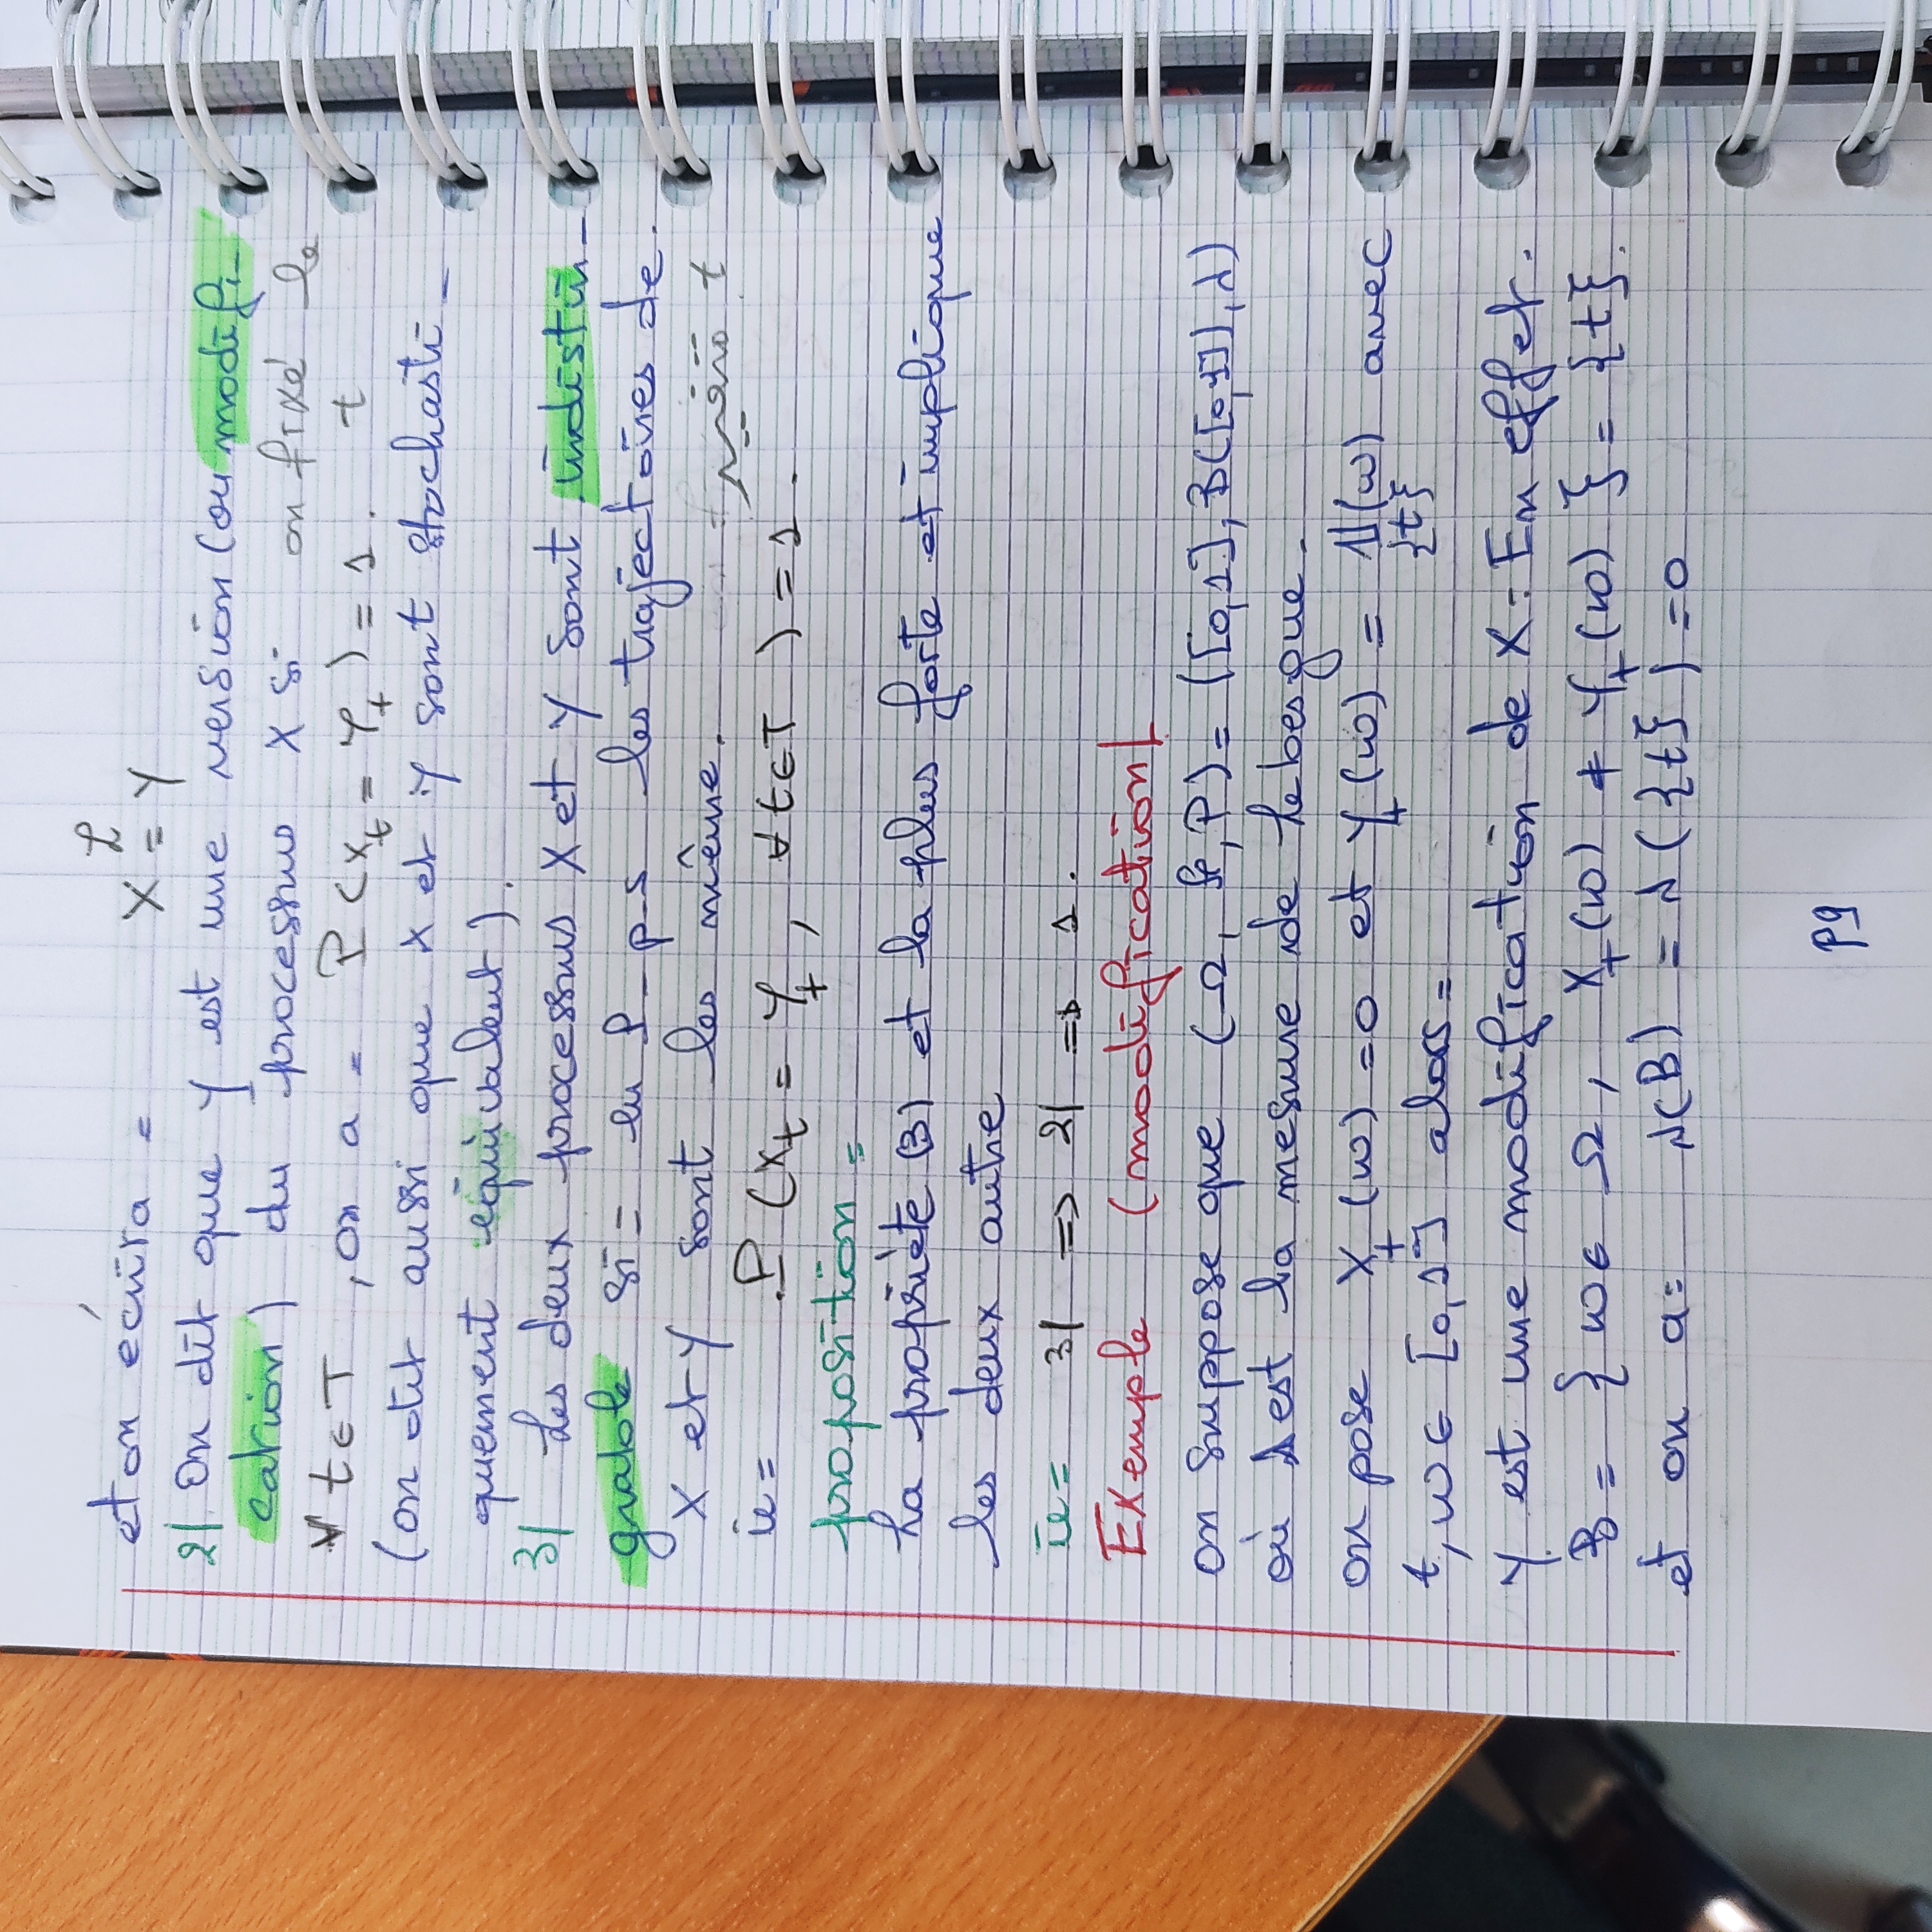 et on écrira = X ℒ= Y
2/ On dit que Y est une version (ou modifi-
cation) du processus X si on fixé le
∀ t ∈ T , on a = P(X_t = Y_t) = 1 . t
(on dit aussi que X et Y sont stochasti-
quement équivalent).
3/ Les deux processus X et Y sont indistin-
guable si = en P_p_s les trajectoires de
X et Y sont les même. t
ie = P(X_t = Y_t , ∀ t ∈ T) = 1 .
proposition =
La propriète (3) et la plus forte et implique
les deux autre
ie = 3/ => 2/ => 1 .
Exemple (modification)
on suppose que (Ω, , P) = ([0,1], B([0,1]), λ)
où λ est la mesure de Lebesgue.
on pose X_t(ω) = 0 et Y_t(ω) = 1_{t}(ω) avec
t, ω ∈ [0,1] alors =
Y est une modification de X : En effet.
B = { ω ∈ Ω , X_t(ω) ≠ Y_t(ω) } = {t}.
et on a = λ(B) = λ({t}) = 0
P9